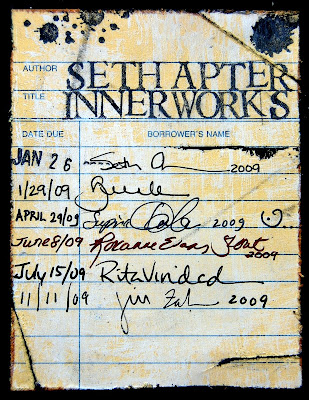 AUTHOR SETH APTER
TITLE INNERWORKS
DATE DUE BORROWER'S NAME
JAN 26 Seth 2009
1/29/09
APRIL 29/09 2009
June 8/09 Roxanne Evans Stout
2009
July 15/09 Rita Vindedzis
11/11/09 2009